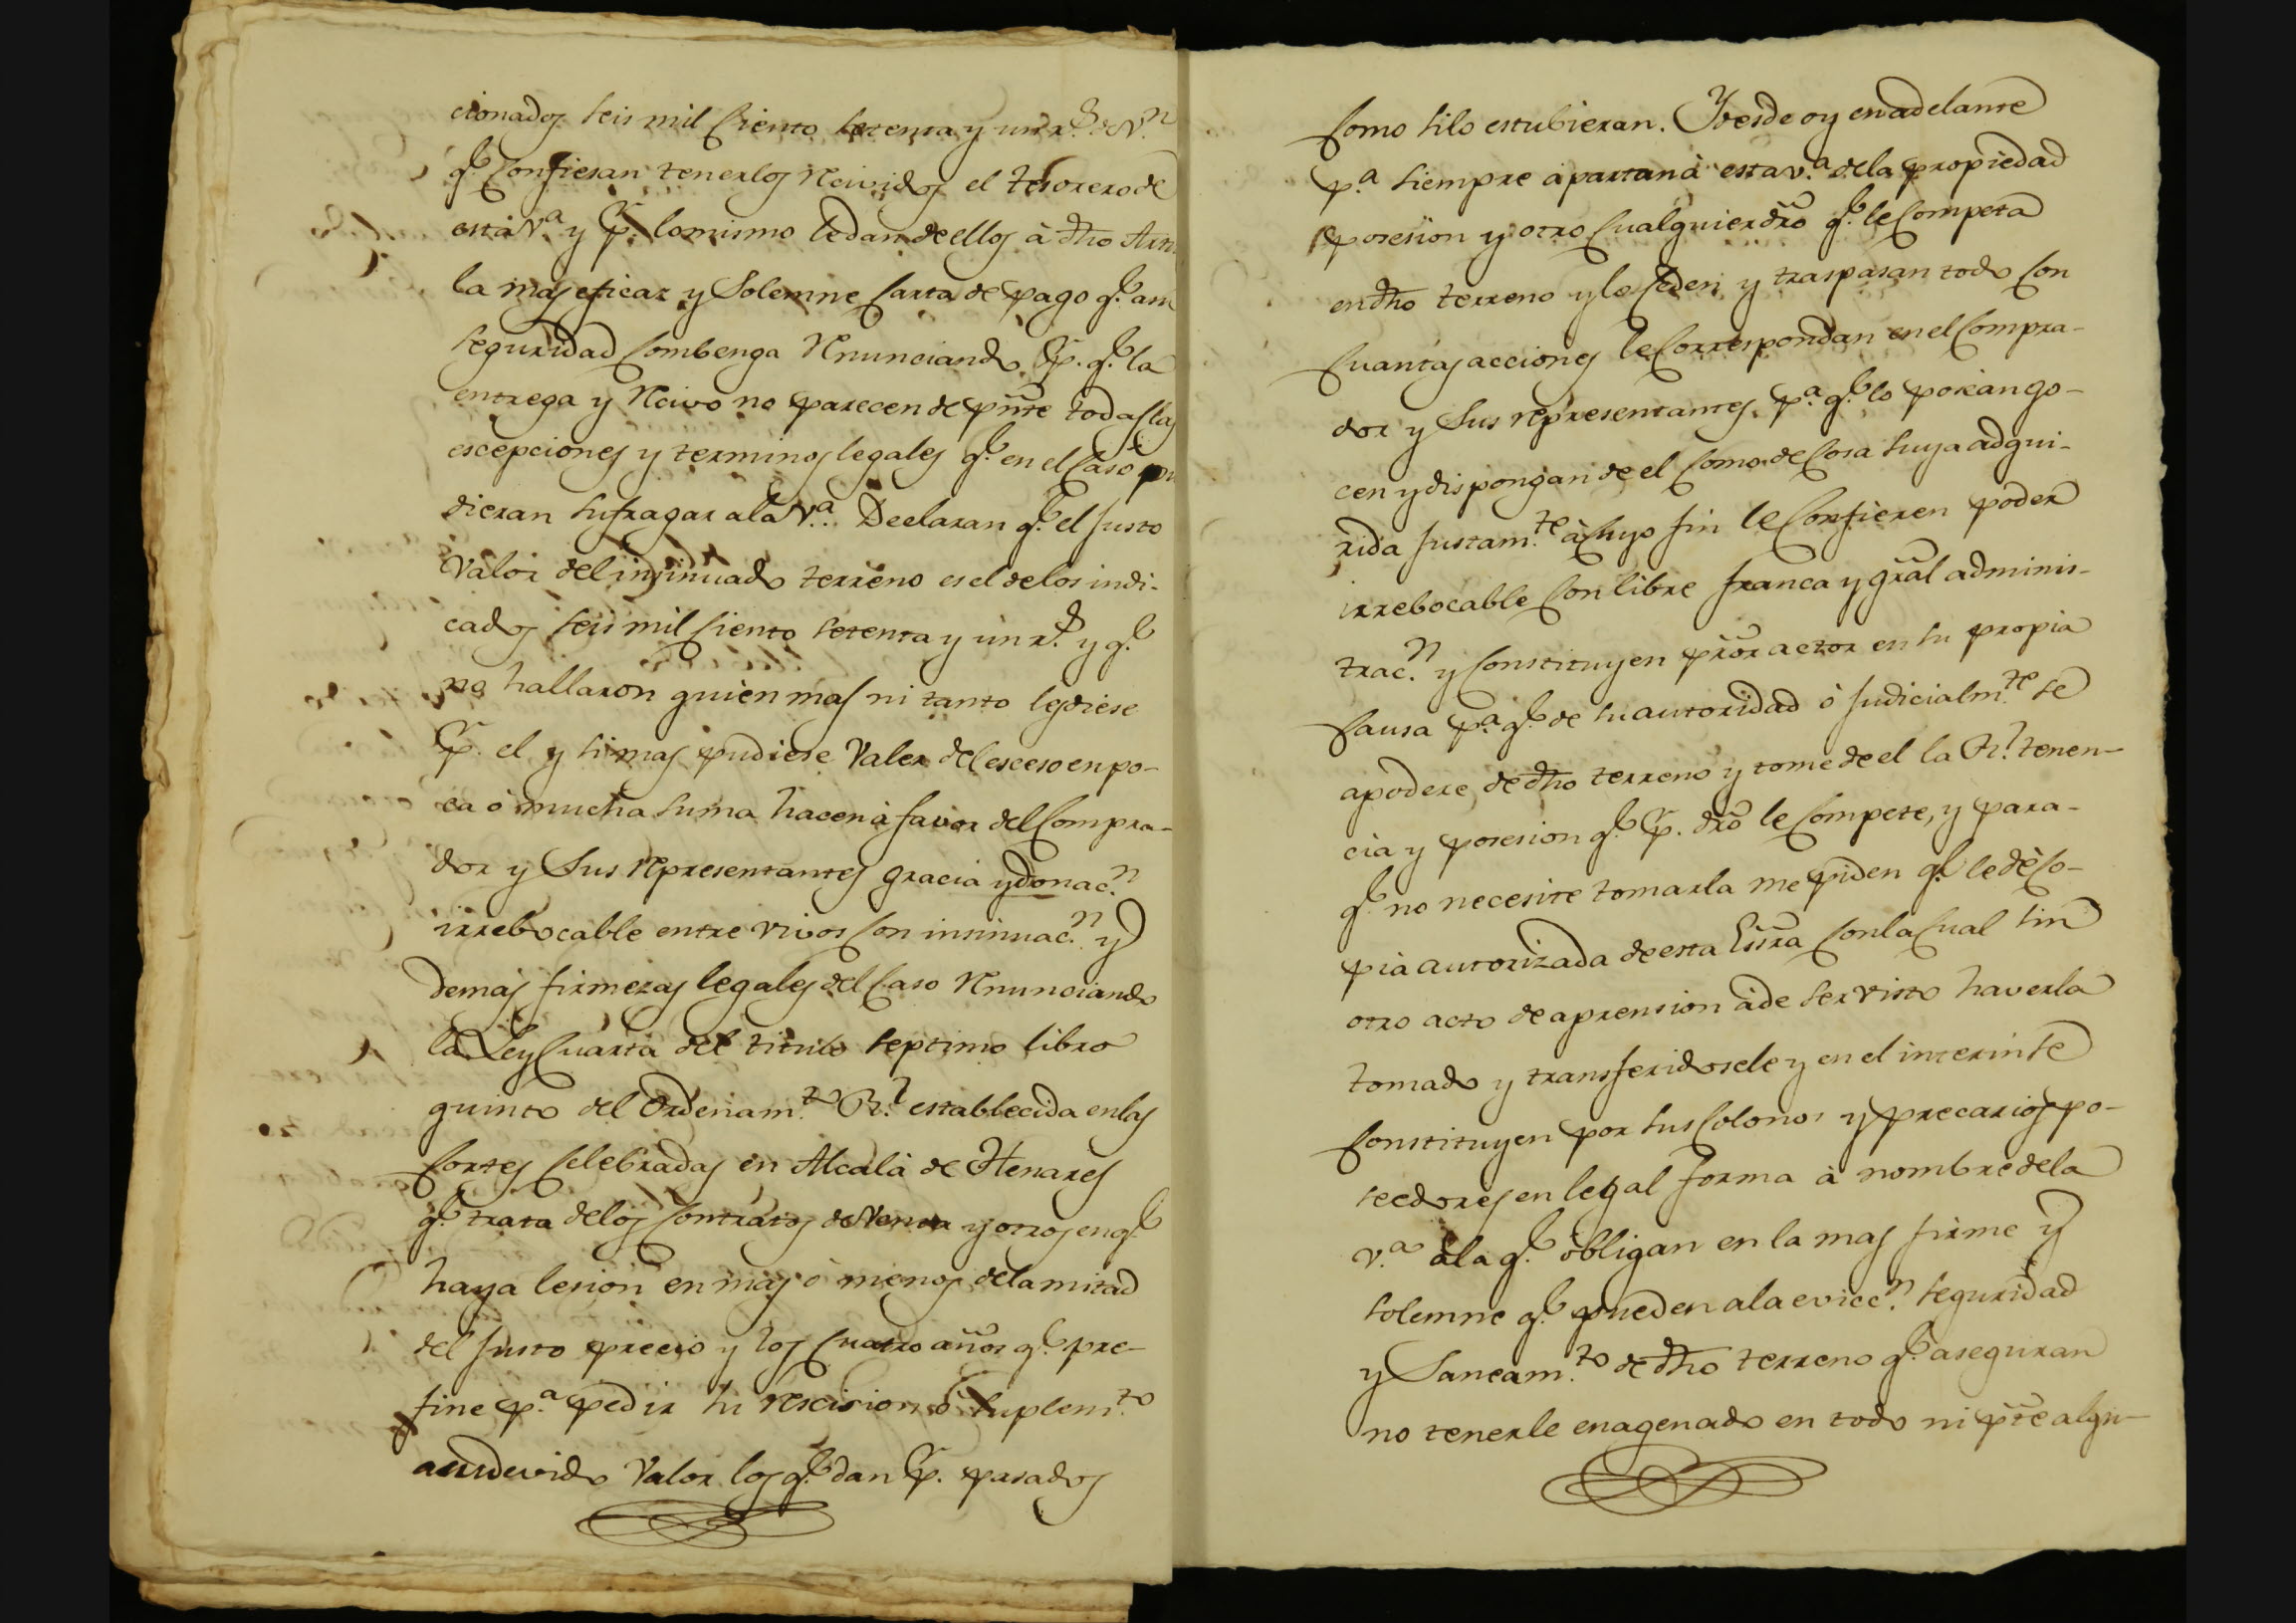 cionados seis mil ciento setenta y un r.s de V.n
q.e confiesan tenerlos recividos el tesorero de
esta V.a y p.r lo mismo le dan de ellos à dho
la mas eficaz y Solemne carta de pago q.e a su
seguridad combenga renunciando p.r q.e la
entrega y recivo no parecen de pnte todas las
escepciones y terminos legales q.e en el caso pu
dieran sufragar a la V.a Declaran q.e el justo
Valor del insinuado terreno es el de los indi-
cados seis mil ciento setenta y un r.s y q.e
no hallaron quièn mas ni tanto les diese
p.r el y si mas pudiese Valer del esceso en po-
ca o mucha suma hacen à favor del compra-
dor y Sus representantes gracia y donac.n
irrebocable entre vivos con insinuac.n y
demas firmezas legales del caso renunciando
la Ley cuarta del titulo septimo libro
quinto del Ordenam.to R.l establecida en las
cortes celebradas en Alcalà de Henares
q.e trata de los contratos de Venta y otros en q.e
haya lesion en mas o menos de la mitad
del justo precio y los cuatro años q.e pre-
fine p.a pedir su rescision ò suplem.to
a su devido Valor los q.e dan p.r pasados
como si lo estubieran. Y desde oy en adelante
p.a siempre apartan à esta v.a de la propiedad
posesion y otro cualquier dro q.e le competa
en dho terreno y lo ceden y traspasan todo con
cuantas acciones le correspondan en el compra-
dor y Sus representantes p.a q.e lo posean go-
cen y dispongan de el como de cosa suya adqui-
rida justam.te à cuyo fin le confieren poder
irrebocable con libre franca y gral adminis-
trac.n y constituyen pror actor en su propia
causa p.a q.e de su autoridad ò judicialm.te se
apodere de dho terreno y tome de el la R.l tenen-
cia y posesion q.e p.r dro le compete, y para-
q.e no necesite tomarla me piden q.e le dè co-
pia autorizada de esta Essra con la cual sin
otro acto de aprension à de ser visto haverla
tomado y transferidosele y en el interin se
constituyen por sus colonos y precarios po-
seedores en legal forma à nombre de la
v.a à la q.e obligan en la mas firme y
solemne q.e pueden a la evicc.n seguridad
y Saneam.to de dho terreno q.e aseguran
no tenerle enagenado en todo ni pte algu-